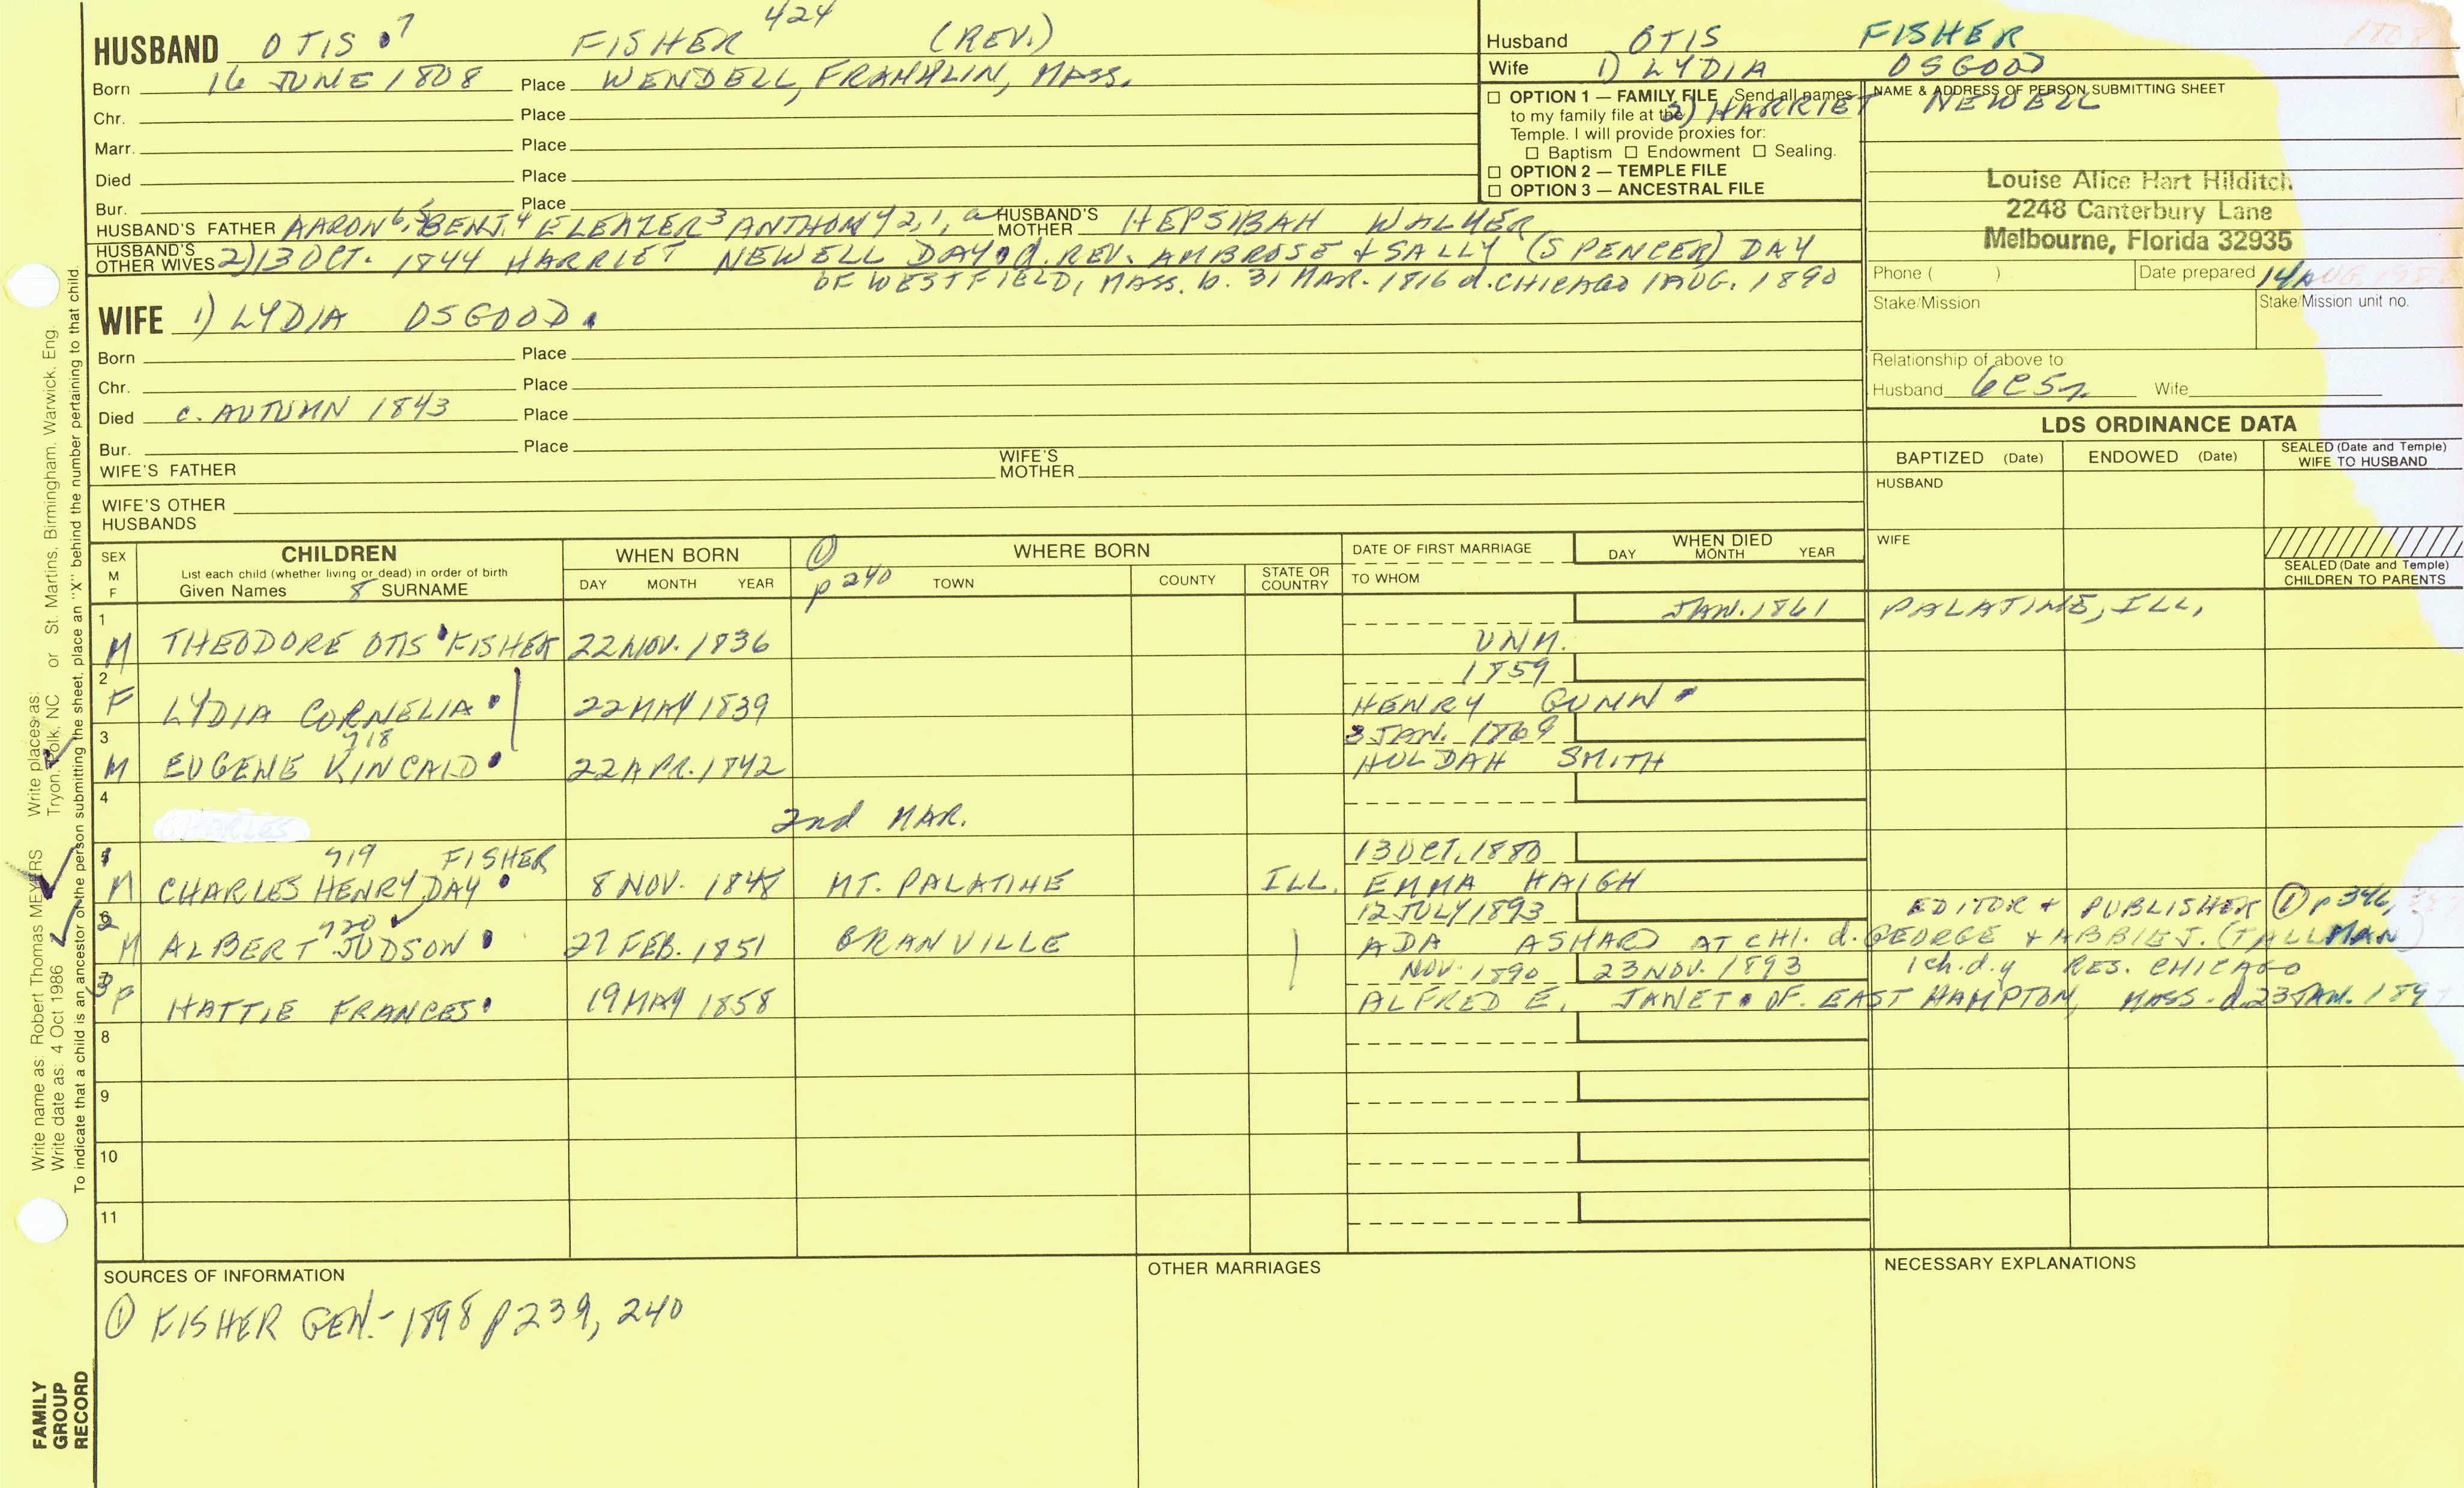 HUSBAND OTIS 7 FISHER 424 (REV.)
Born 16 JUNE 1808 Place WENDELL, FRANKLIN, MASS.
Chr. Place
Marr. Place
Died Place
Bur. Place
HUSBAND'S FATHER AARON 6, 5 BENJ. 4 ELEAZER 3 ANTHONY 2, 1, a HUSBAND'S MOTHER HEPSIBAH WALKER
HUSBAND'S OTHER WIVES 2) 13 OCT. 1844 HARRIET NEWELL DAY d. REV. AMBROSE & SALLY (SPENCER) DAY
OF WESTFIELD, MASS. b. 31 MAR. 1816 d. CHICAGO 1 AUG. 1890
WIFE 1) LYDIA OSGOOD
Born Place
Chr. Place
Died c. AUTUMN 1843 Place
Bur. Place
WIFE'S FATHER WIFE'S MOTHER
WIFE'S OTHER HUSBANDS
Husband OTIS FISHER
Wife 1) LYDIA OSGOOD
2) HARRIET NEWELL
☐ OPTION 1 — FAMILY FILE Send all names
to my family file at the
Temple. I will provide proxies for:
☐ Baptism ☐ Endowment ☐ Sealing.
☐ OPTION 2 — TEMPLE FILE
☐ OPTION 3 — ANCESTRAL FILE
NAME & ADDRESS OF PERSON SUBMITTING SHEET
Louise Alice Hart Hilditch
2248 Canterbury Lane
Melbourne, Florida 32935
Phone ( ) Date prepared 14 AUG.
Stake/Mission Stake/Mission unit no.
Relationship of above to
Husband 6C5r Wife
LDS ORDINANCE DATA
BAPTIZED (Date) ENDOWED (Date) SEALED (Date and Temple) WIFE TO HUSBAND
HUSBAND
WIFE
SEALED (Date and Temple) CHILDREN TO PARENTS
SEX M F
CHILDREN
List each child (whether living or dead) in order of birth
Given Names 8 SURNAME
WHEN BORN
DAY MONTH YEAR
① p 240
WHERE BORN
TOWN COUNTY STATE OR COUNTRY
DATE OF FIRST MARRIAGE
TO WHOM
WHEN DIED
DAY MONTH YEAR
1 JAN. 1861 PALATINE, ILL,
M THEODORE OTIS FISHER 22 NOV. 1836 UNM.
2 1859
F LYDIA CORNELIA 22 MAY 1839 HENRY GUNN
3 718 3 JAN. 1869
M EUGENE KINCAID 22 APR. 1842 HULDAH SMITH
4
2nd MAR.
1 719 FISHER 13 OCT. 1880
M CHARLES HENRY DAY 8 NOV. 1848 MT. PALATINE ILL. EMMA HAIGH
2 720 12 JULY 1893 EDITOR & PUBLISHER ① p 346,
M ALBERT JUDSON 27 FEB. 1851 GRANVILLE ADA ASHARD AT CHI. d. GEORGE & ABBIE J. (TALLMAN)
3 NOV. 1890 23 NOV. 1893 1 ch. d.y RES. CHICAGO
F HATTIE FRANCES 19 MAY 1858 ALFRED E. JANET OF EAST HAMPTON, MASS. d. 23 JAN. 189
8
9
10
11
SOURCES OF INFORMATION
① FISHER GEN. - 1898 p 239, 240
OTHER MARRIAGES
NECESSARY EXPLANATIONS
Write name as: Robert Thomas MEYERS Write places as:
Write date as: 4 Oct 1986 Tryon, Polk, NC or St. Martins, Birmingham, Warwick, Eng.
To indicate that a child is an ancestor of the person submitting the sheet, place an "X" behind the number pertaining to that child.
FAMILY
GROUP
RECORD